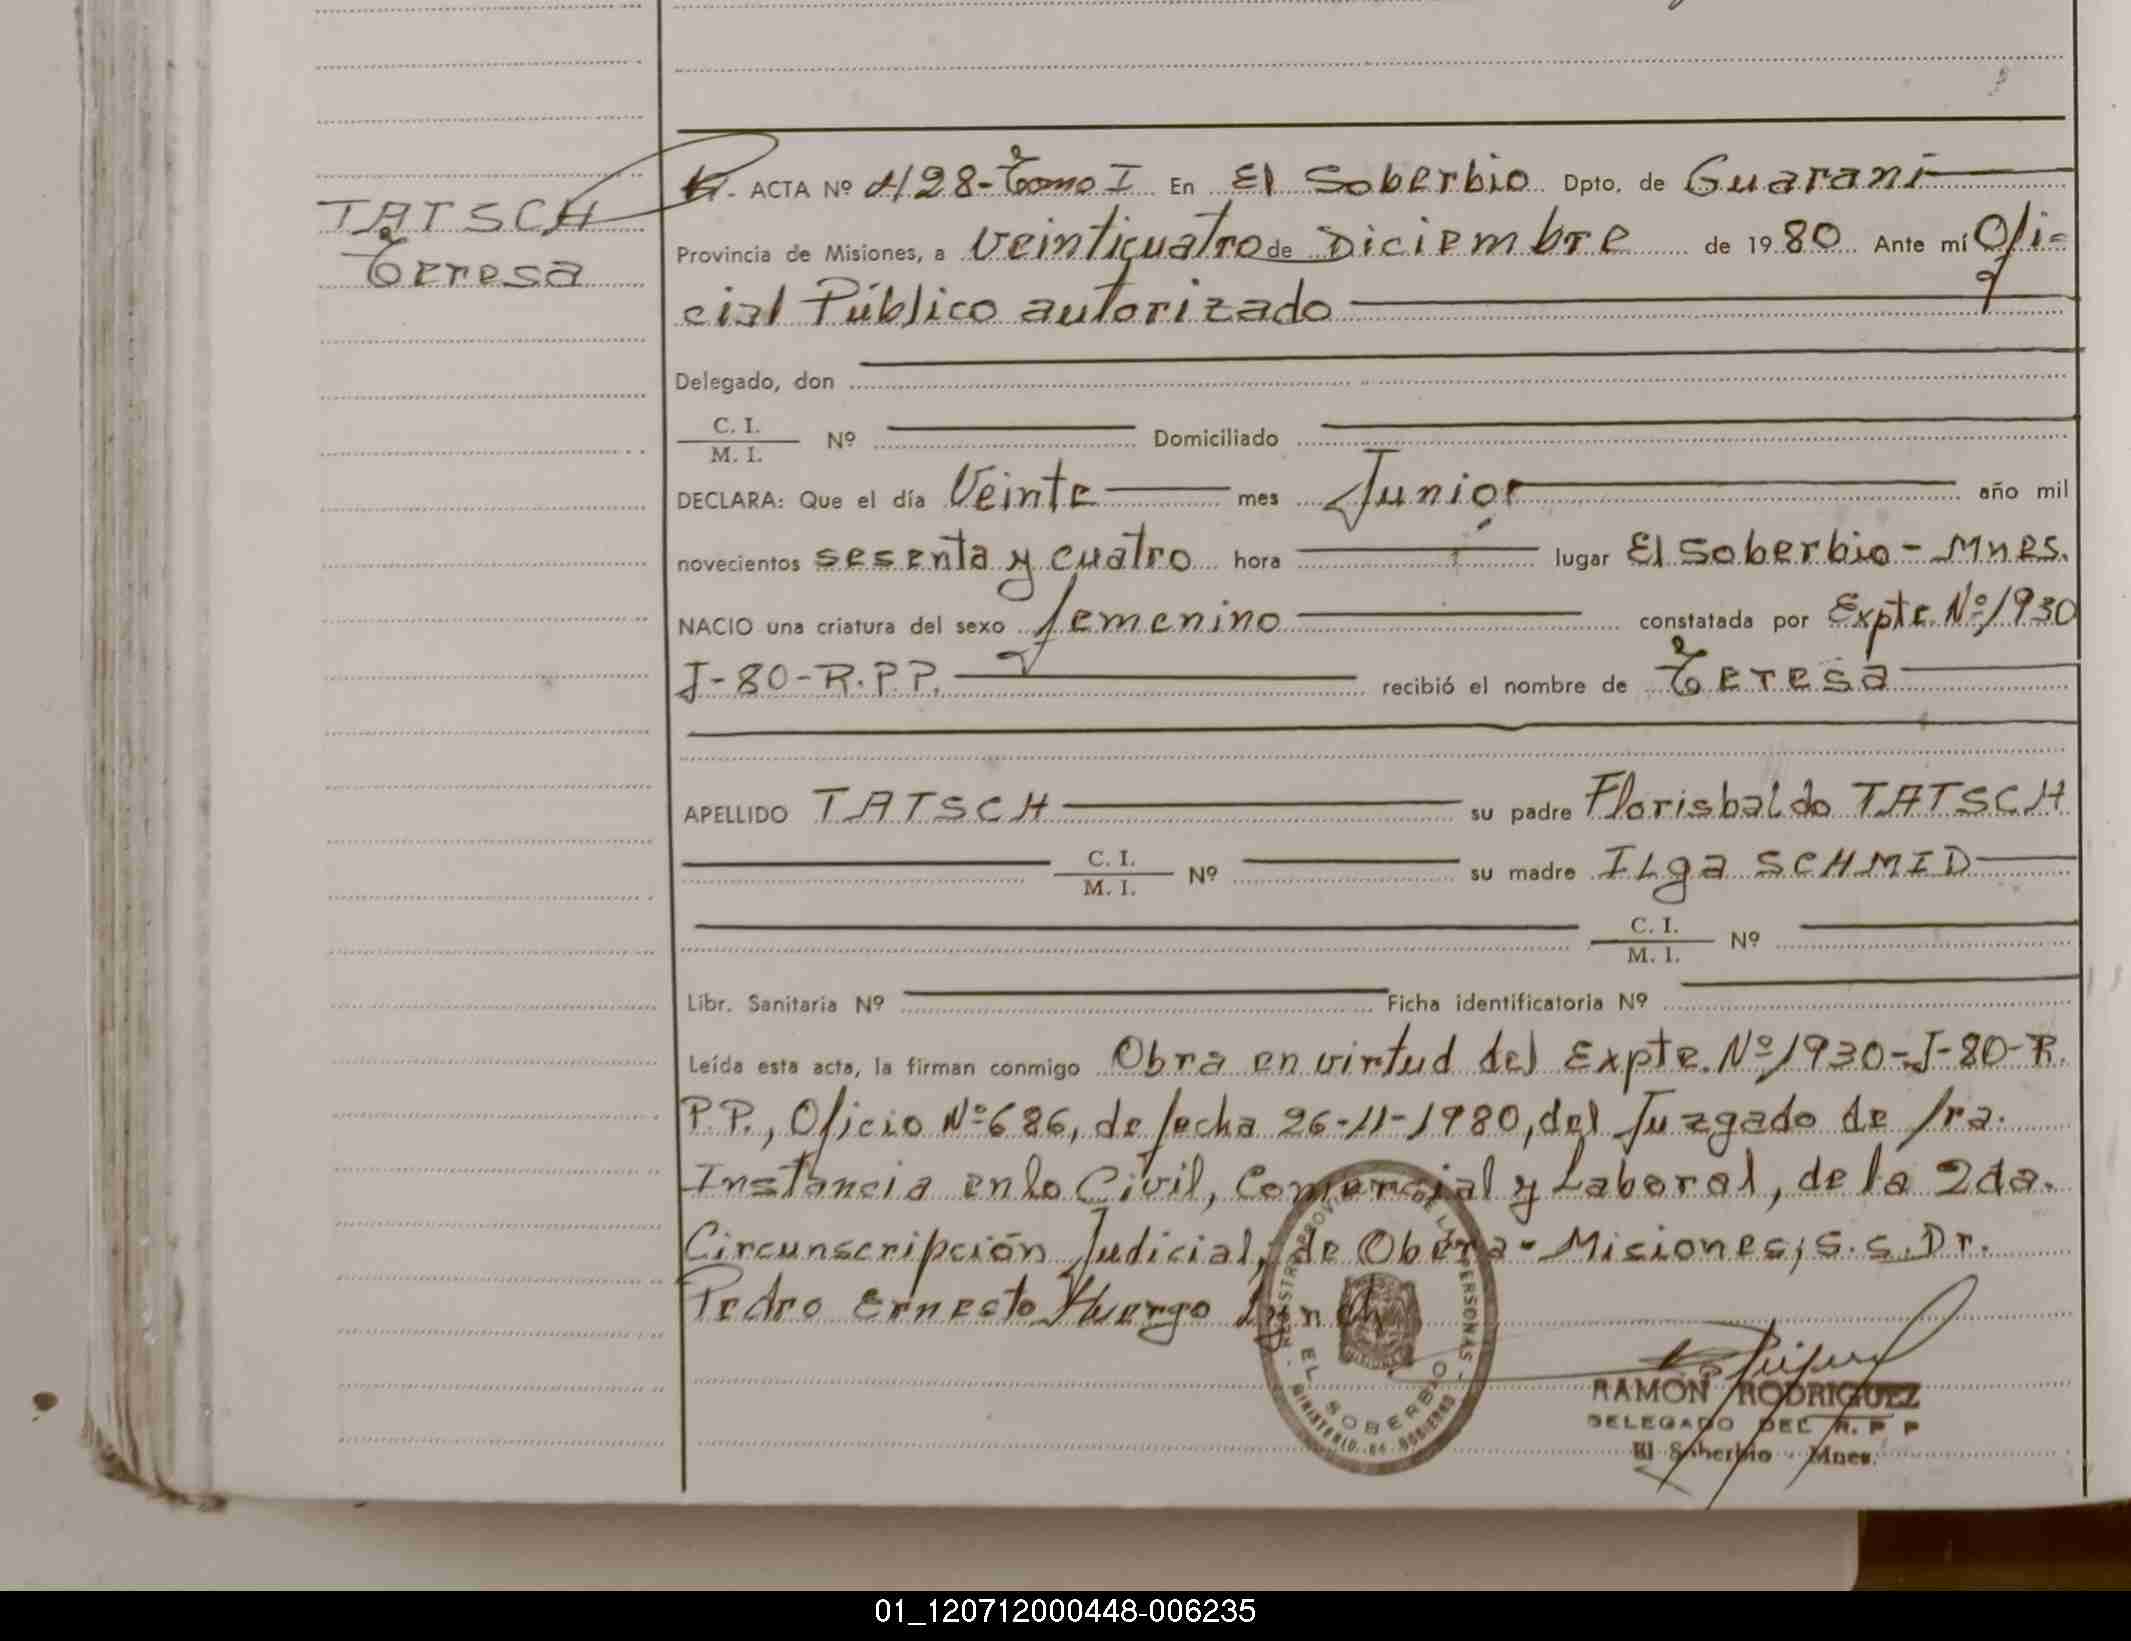 TATSCH
Teresa
ACTA Nº 128-Tomo I En El Soberbio Dpto. de Guaraní
Provincia de Misiones, a Veinticuatro de Diciembre de 1980 Ante mí Ofi-
cial Público autorizado
Delegado, don
C. I.
M. I. Nº Domiciliado
DECLARA: Que el día Veinte mes Junio año mil
novecientos sesenta y cuatro hora lugar El Soberbio - Mnes.
NACIO una criatura del sexo femenino constatada por Expte. Nº 1930
J-80-R.P.P. recibió el nombre de Teresa
APELLIDO TATSCH su padre Florisbaldo TATSCH
C. I.
M. I. Nº su madre ILga SCHMID
C. I.
M. I. Nº
Libr. Sanitaria Nº Ficha identificatoria Nº
Leída esta acta, la firman conmigo Obra en virtud del Expte. Nº 1930-J-80-R.
P.P., Oficio Nº 686, de fecha 26-11-1980, del Juzgado de 1ra.
Instancia en lo Civil, Comercial y Laboral, de la 2da.
Circunscripción Judicial, de Oberá - Misiones; S.S. Dr.
Pedro Ernesto Huergo Lynch
EL SOBERBIO
MINISTERIO DE GOBIERNO
RAMON RODRIGUEZ
DELEGADO DEL R. P P
El Soberbio - Mnes.
01_120712000448-006235